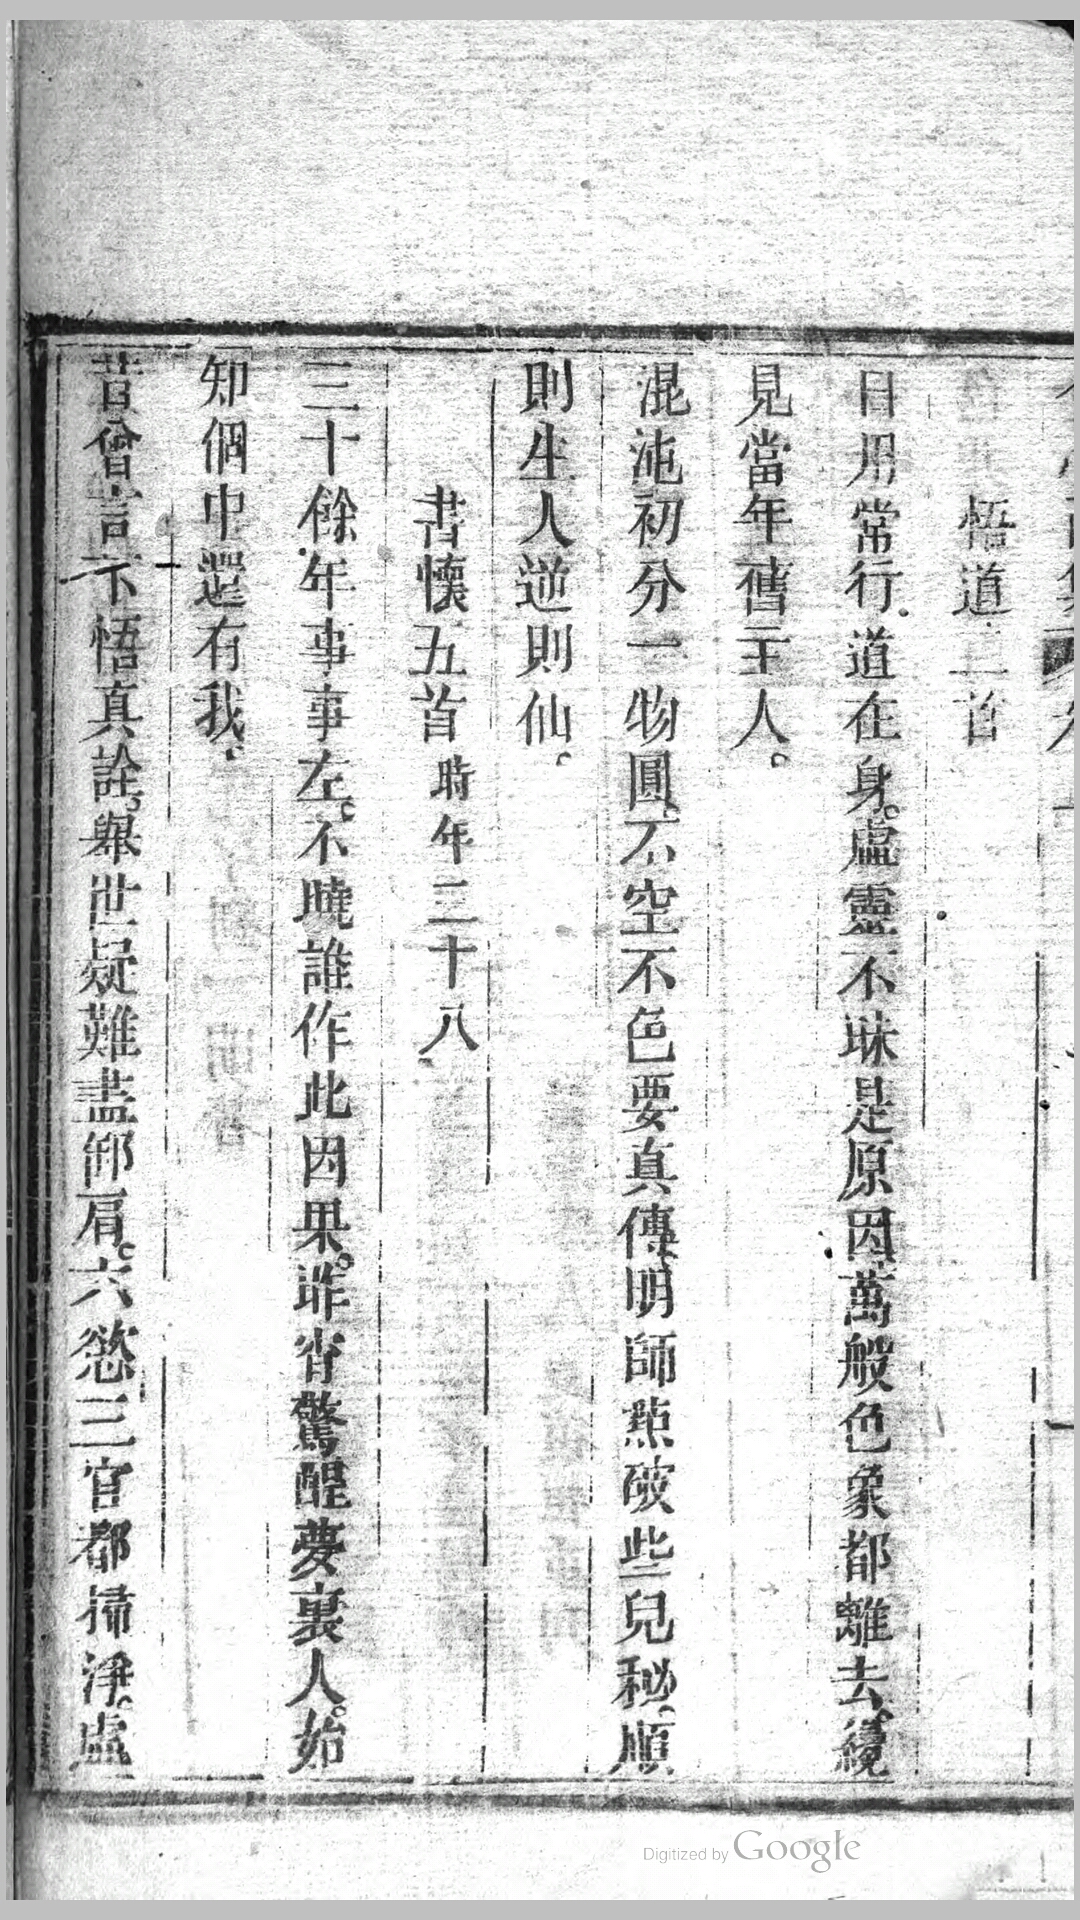 悟道二首
日用常行道在身虛靈不昧是原因萬般色象都離去纔
見當年舊主人
混沌初分一物圓不空不色要真傳明師㸃破些兒秘順
則生人逆則仙
書懷五首時年三十八
三十餘年事事左不曉誰作此因果昨宵驚醒夢裏人始
知個中還有我
昔曾言下悟真詮舉世疑難盡卸肩六慾三官都掃淨虛
Digitized by Google